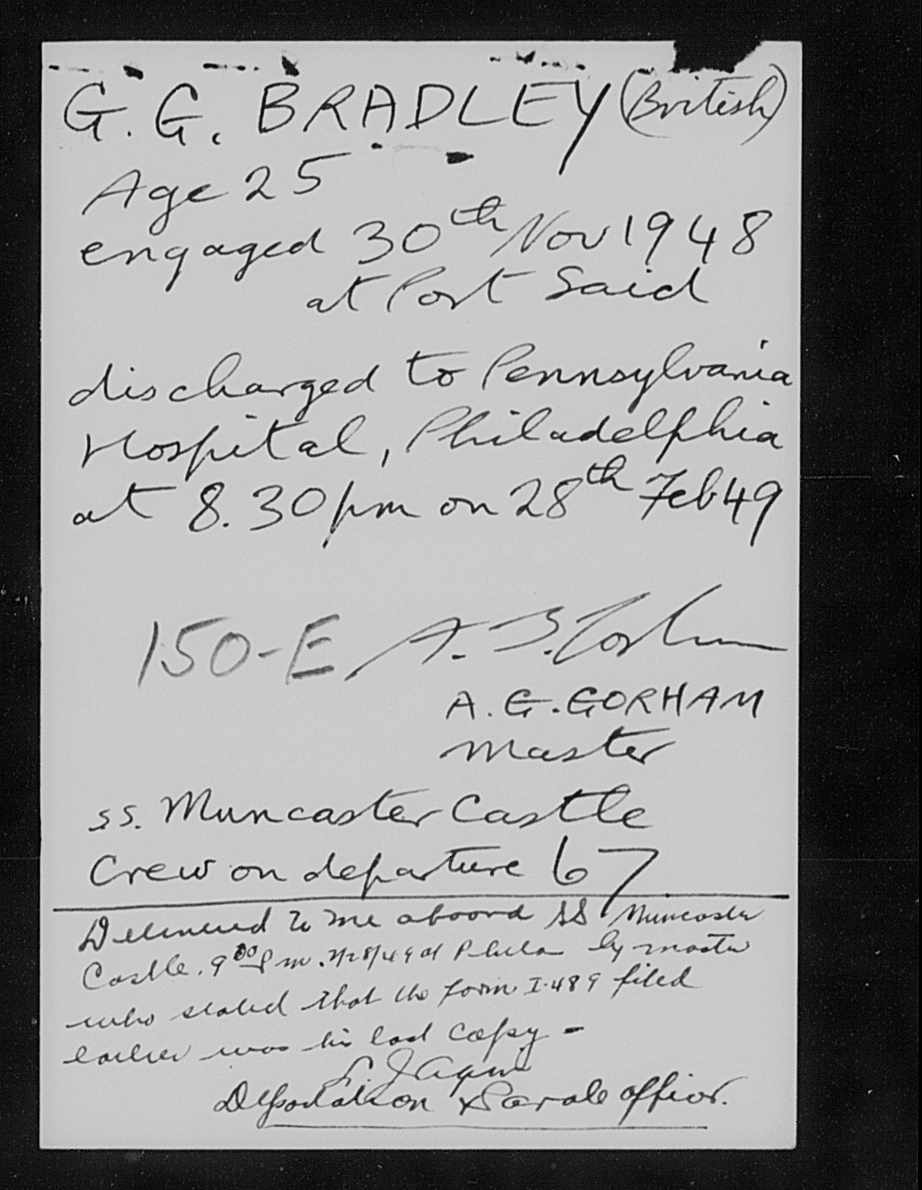 G. G. BRADLEY (British)
Age 25
engaged 30th Nov 1948
at Port Said
discharged to Pennsylvania
Hospital, Philadelphia
at 8.30 pm on 28th Feb 49
150-E
A. G. GORHAM
Master
ss. Muncaster Castle
Crew on departure 67
Delivered to me aboard SS Muncaster
Castle. 9 00 Pm. 2/28/49 at Phila by master
who stated that the form I-489 filed
earlier was his last copy -
Deportation & Parole officer.